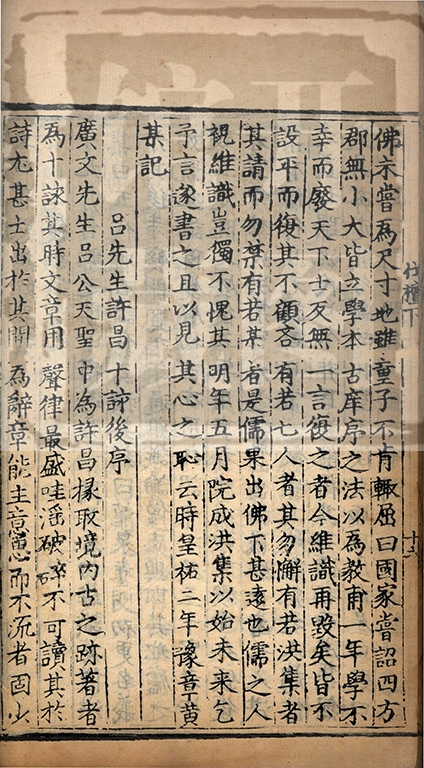 伐檀下
十三
佛未嘗為尺寸地雖童子不肯輒屈曰國家嘗詔四方
郡無小大皆立學本古庠序之法以為教甫一年學不
幸而廢天下士反無一言復之者今維識再毀矣皆不
設平而復其不顧吝有若七人者其勿懈有若洪集者
其請而勿禁有若某者是儒果出佛下甚遠也儒之人
視維識豈獨不愧其明年五月院成洪集以始末来乞
予言遂書之且以見其心之恥云時皇祐二年豫章黄
某記
呂先生許昌十詠後序
廣文先生呂公天聖中為許昌掾取境内古之跡著者
為十詠其時文章用聲律最盛哇淫破碎不可讀其於
詩尤甚士出於其間為辭章能主意思而不流者固少